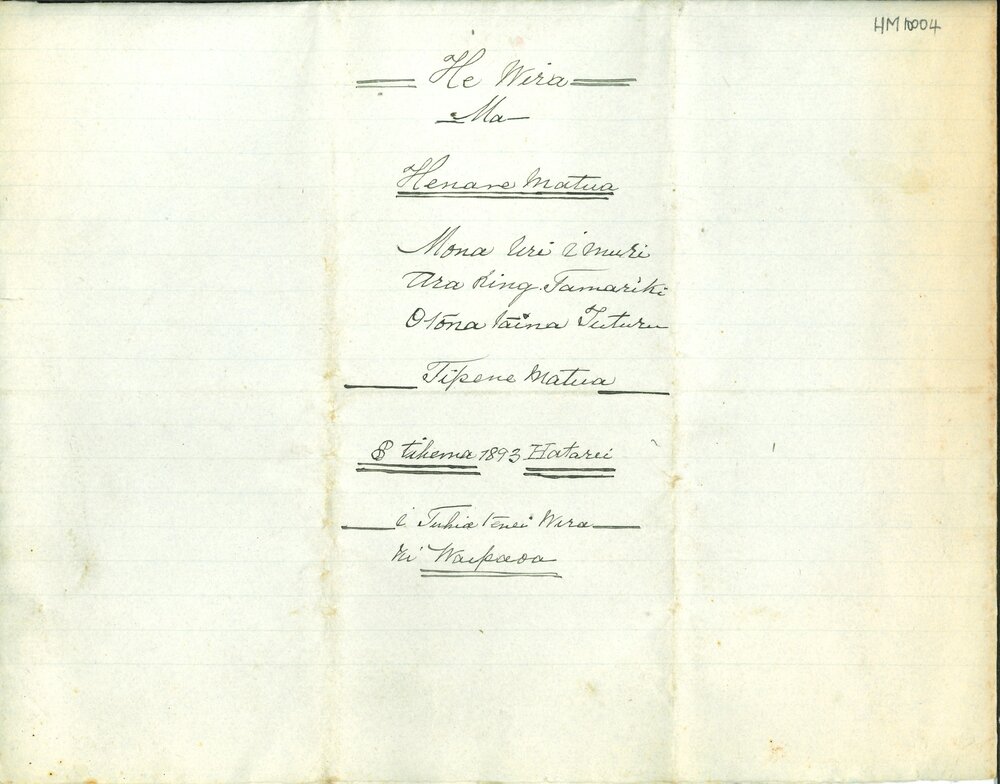 HM 1004
He Wira
Ma
Henare Matua
Mona Uri i muri
Ara King. Tamariki
O tona taina Tuturu
Tipene Matua
8 tihema 1893 Hatarei
i Tuhia tenei Wira
Ki Waipaoa